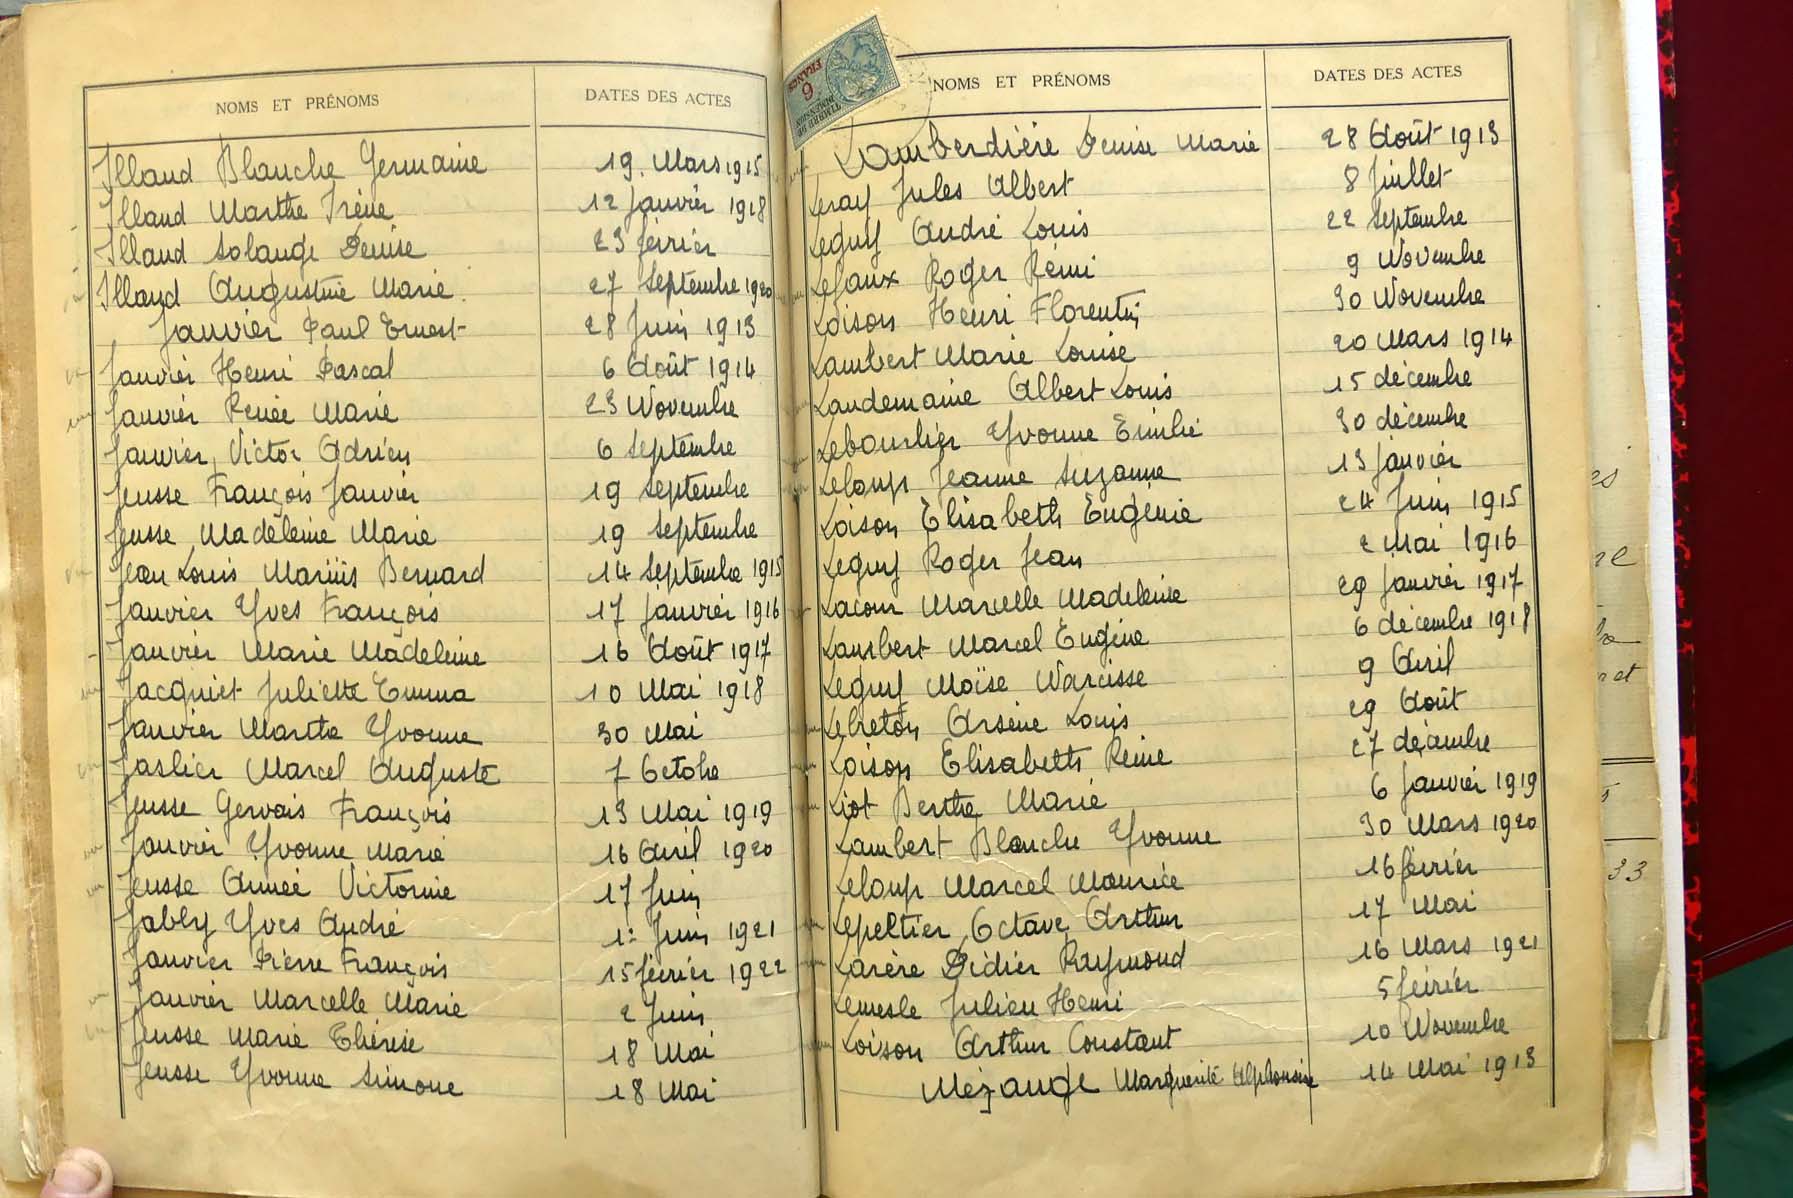 NOMS ET PRÉNOMS DATES DES ACTES
Illand Blanche Germaine 19 Mars 1915
Illand Marthe Irène 12 Janvier 1918
Illand Solange Denise 23 février
Illand Augustine Marie 27 Septembre 1920
Janvier Paul Ernest 28 Juin 1913
Janvier Henri Pascal 6 Août 1914
Janvier Renée Marie 23 Novembre
Janvier Victor Adrien 6 Septembre
Jeusse François Janvier 19 Septembre
Jeusse Madeleine Marie 19 Septembre
Jean Louis Marius Bernard 14 Septembre 1915
Janvier Yves François 17 Janvier 1916
Janvier Marie Madeleine 16 Août 1917
Jacquet Juliette Emma 10 Mai 1918
Janvier Marthe Yvonne 30 Mai
Jaslier Marcel Auguste 7 Octobre
Jeusse Gervais François 13 Mai 1919
Janvier Yvonne Marie 16 Avril 1920
Jeusse Aimée Victorine 17 Juin
Jably Yves André 1er Juin 1921
Janvier Pierre François 15 février 1922
Janvier Marcelle Marie 2 Juin
Jeusse Marie Thérèse 18 Mai
Jeusse Yvonne Simone 18 Mai
6 FRANCS
TIMBRE DE DIMENSION
NOMS ET PRÉNOMS DATES DES ACTES
Lamberdière Denise Marie 28 Août 1913
Leray Jules Albert 8 Juillet
Leguy André Louis 22 Septembre
Lefaux Roger Rémi 9 Novembre
Loison Henri Florentin 30 Novembre
Lambert Marie Louise 20 Mars 1914
Landemaine Albert Louis 15 décembre
Lebourlier Yvonne Emilie 30 décembre
Leloup Jeanne Suzanne 13 Janvier
Loison Elisabeth Eugénie 24 Juin 1915
Leguy Roger Jean 2 Mai 1916
Lacour Marcelle Madeleine 29 Janvier 1917
Lambert Marcel Eugène 6 décembre 1918
Leguy Moïse Narcisse 9 Avril
Lebreton Arsène Louis 29 Août
Loison Elisabeth Reine 27 décembre
Liot Berthe Marie 6 Janvier 1919
Lambert Blanche Yvonne 30 Mars 1920
Leloup Marcel Maurice 16 février
Lepeltier Octave Arthur 17 Mai
Larère Didier Raymond 16 Mars 1921
Lemesle Julien Henri 5 février
Loison Arthur Constant 10 Novembre
Mézange Marguerite Alphonsine 14 Mai 1913
33